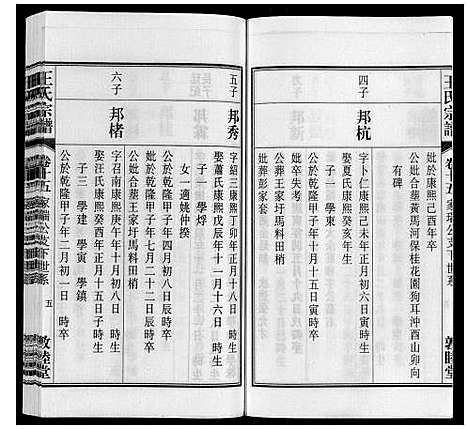 王氏宗譜
卷十五
家瑞公支下世系
敦睦堂
妣於康熙己酉年卒
公妣合墓黃馬河保桂花園狗耳沖酉山卯向
有碑
四子
邦杭
字卜仁康熙己未年正月初六日寅時生
娶夏氏康熙癸亥年生
子一 學東
公於乾隆甲子年十月十五日寅時卒
妣卒失考
公葬王家圩馬料田梢
妣葬彭家套
五子
邦秀
字紹三康熙丁卯年正月十八日戌時生
娶蕭氏康熙戊辰年十一月十六日 時生
子一 學焊
女一 適姚仲揆
公於乾隆甲子年四月初八日辰時卒
妣於乾隆甲子年七月二十二日辰時卒
公妣合墓王家圩馬料田梢
六子
邦楮
字召南康熙庚午年十月初八日 時生
娶汪氏康熙癸酉年正月十五日子時生
子三 學建 學寅 學鎮
公於乾隆甲子年二月初一日 時卒
王氏宗譜
卷十五
家瑞公支下世系
五
敦睦堂